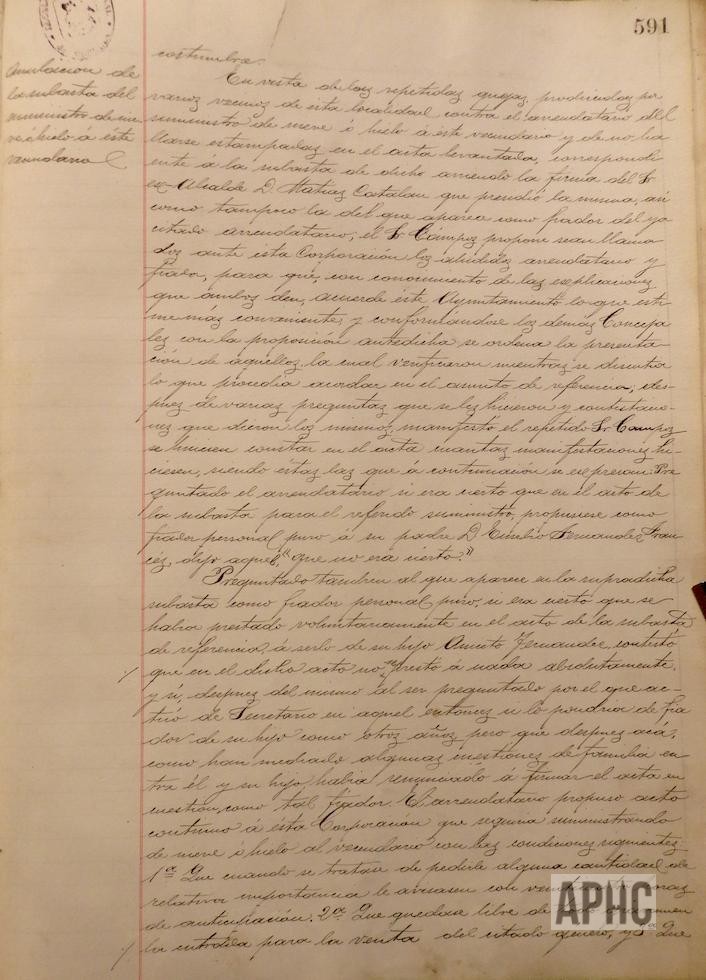 591
costumbre.
Anulacion de
la subasta del
suministro de nie
ve ó hielo á este
vecindario
En vista de las repetidas quejas, producidas por
varios vecinos de esta localidad contra el arrendatario del
suministro de nieve ó hielo á este vecindario y de no ha
llarse estampadas en el acta levantada, correspondi
ente á la subasta de dicho arriendo la firma del Sr
ex-Alcalde D. Matias Catalan que presidió la misma, asi
como tampoco la del que aparece como fiador del ya
citado arrendatario; el Sr Campos propone sean llama
dos ante esta Corporación los aludidos arrendatario y
fiador, para que, con conocimiento de las explicaciones
que ambos den, acuerde este Ayuntamiento lo que esti
me mas conveniente; y conformándose los demás Conceja
les con la proposición antedicha se ordena la presenta
ción de aquellos, la cual verificaron mientras se discutia
lo que procedia acordar en el asunto de referencia; des-
pues de varias preguntas que se les hicieron y contestacio-
nes que dieron los mismos, manifestó el repetido Sr Campos
se hiciesen constar en el acta cuantas manifestaciones hi-
ciesen, siendo éstas las que á continuación se expresan: Pre
guntado el arrendatario si era cierto que en el acto de
la subasta para el referido suministro, propusiese como
fiador personal puro á su padre D Emilio Fernandez Fran
cés, dijo aquel, "que no era cierto."
Preguntado tambien al que aparece en la supradicha
subasta como fiador personal puro, si era cierto que se
habia prestado voluntariamente en el acto de la subasta
de referencia, á serlo de su hijo Aniceto Fernandez, contestó
que en el dicho acto no se prestó á nada absolutamente,
y si, despues del mismo al ser preguntado por el que ac-
tuó de Secretario en aquel entonces si lo pondria de fia
dor de su hijo como otros años, pero que despues acá,
como han mediado algunas cuestiones de familia en
tre él y su hijo, habia renunciado á firmar el acta en
cuestion, como tal fiador. El arrendatario propuso acto
continuo á esta Corporación que seguiria suministrando
de nieve ó hielo al vecindario con las condiciones siguientes
1ª Que cuando se tratase de pedirle alguna cantidad de
relativa importancia le avisasen con horas
de anticipación. 2ª Que quedase libre de
la entrada para la venta del citado genero, y 3ª Que
APHC